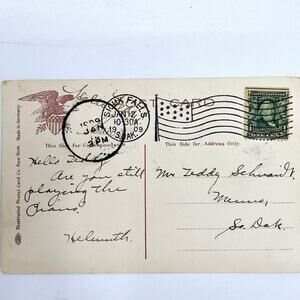 POST CARD
SIOUX FALLS
JAN 12
10-30A
1909
S. DAK.
1909
This Side for Correspondence
This Side for Address Only.
Hello Teddy
Are you still
playing the
Piano?
Helmuth
Mr Teddy Schwardt
Menno,
So. Dak.
Illustrated Postal Card Co. New York. Made in Germany